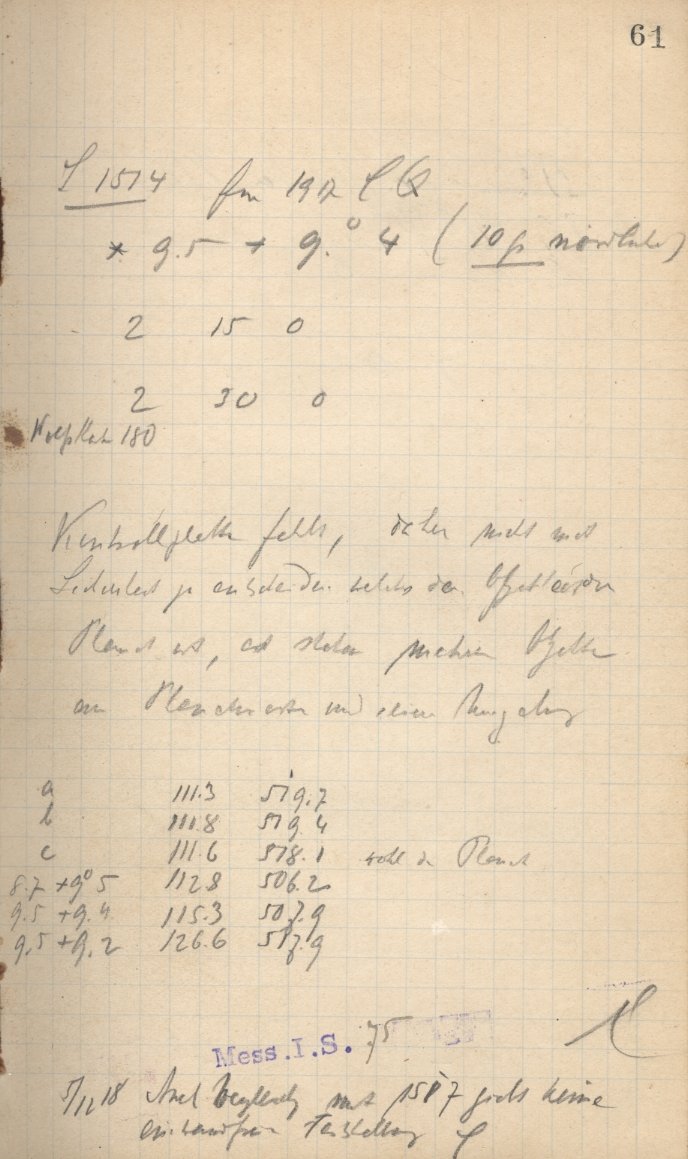 61
1514 für 1912
* 9.5 + 9.° 4 (10 nördlicher)
2 15 0
2 30 0
180
Kontrollplatte fehlt, daher nicht mit
Sicherheit zu entscheiden welches der Objekte der
Planet ist, es stehen mehrere Objekte
am Planetenorte und seiner Umgebung
a 111.3 519.7
b 111.8 519.4
c 111.6 518.1 wohl der Planet
8.7 +9° 5 112.8 506.2
9.5 +9.4 115.3 507.9
9.5 +9.2 126.6 517.9
Mess.I.S. 75
5/12 18 Auch Vergleich mit 1517 gibt keine
einwandfreie Feststellung